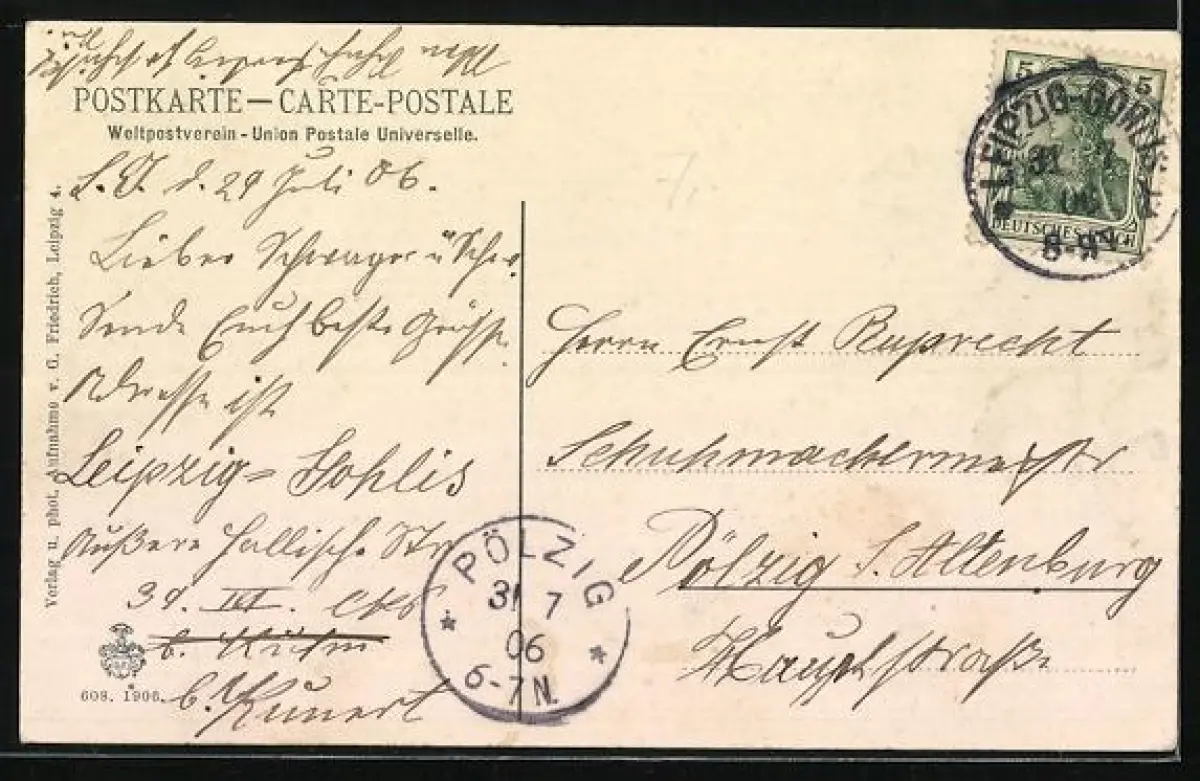 POSTKARTE — CARTE-POSTALE
Weltpostverein - Union Postale Universelle.
L. G. d. 29 Juli 06.
Lieber Schwager u Schw.
Sende Euch beste Grüsse.
Adresse ist
Leipzig=Gohlis
Äußere Hallische Str
39. III.
b. Kühn
b. Kunert
608. 1906.
Verlag u. phot. Aufnahme v. C. Friedrich, Leipzig 4.
5 5
DEUTSCHES REICH
LEIPZIG-GOHLIS
31
06
8-9
Herrn Ernst Ruprecht
Schuhmachermeister
Pölzig S. Altenburg
Hauptstraße
PÖLZIG
31 7
06
6-7N.